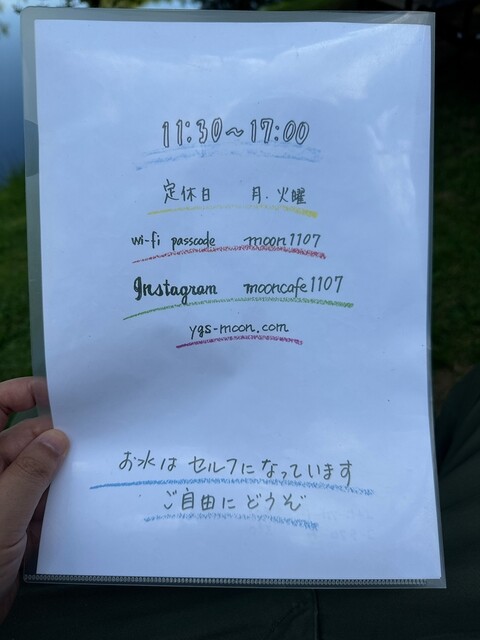 11:30~17:00
定休日 月.火曜
wi-fi passcode moon1107
Instagram mooncafe1107
ygs-moon.com
お水は セルフになっています
ご自由に どうぞ